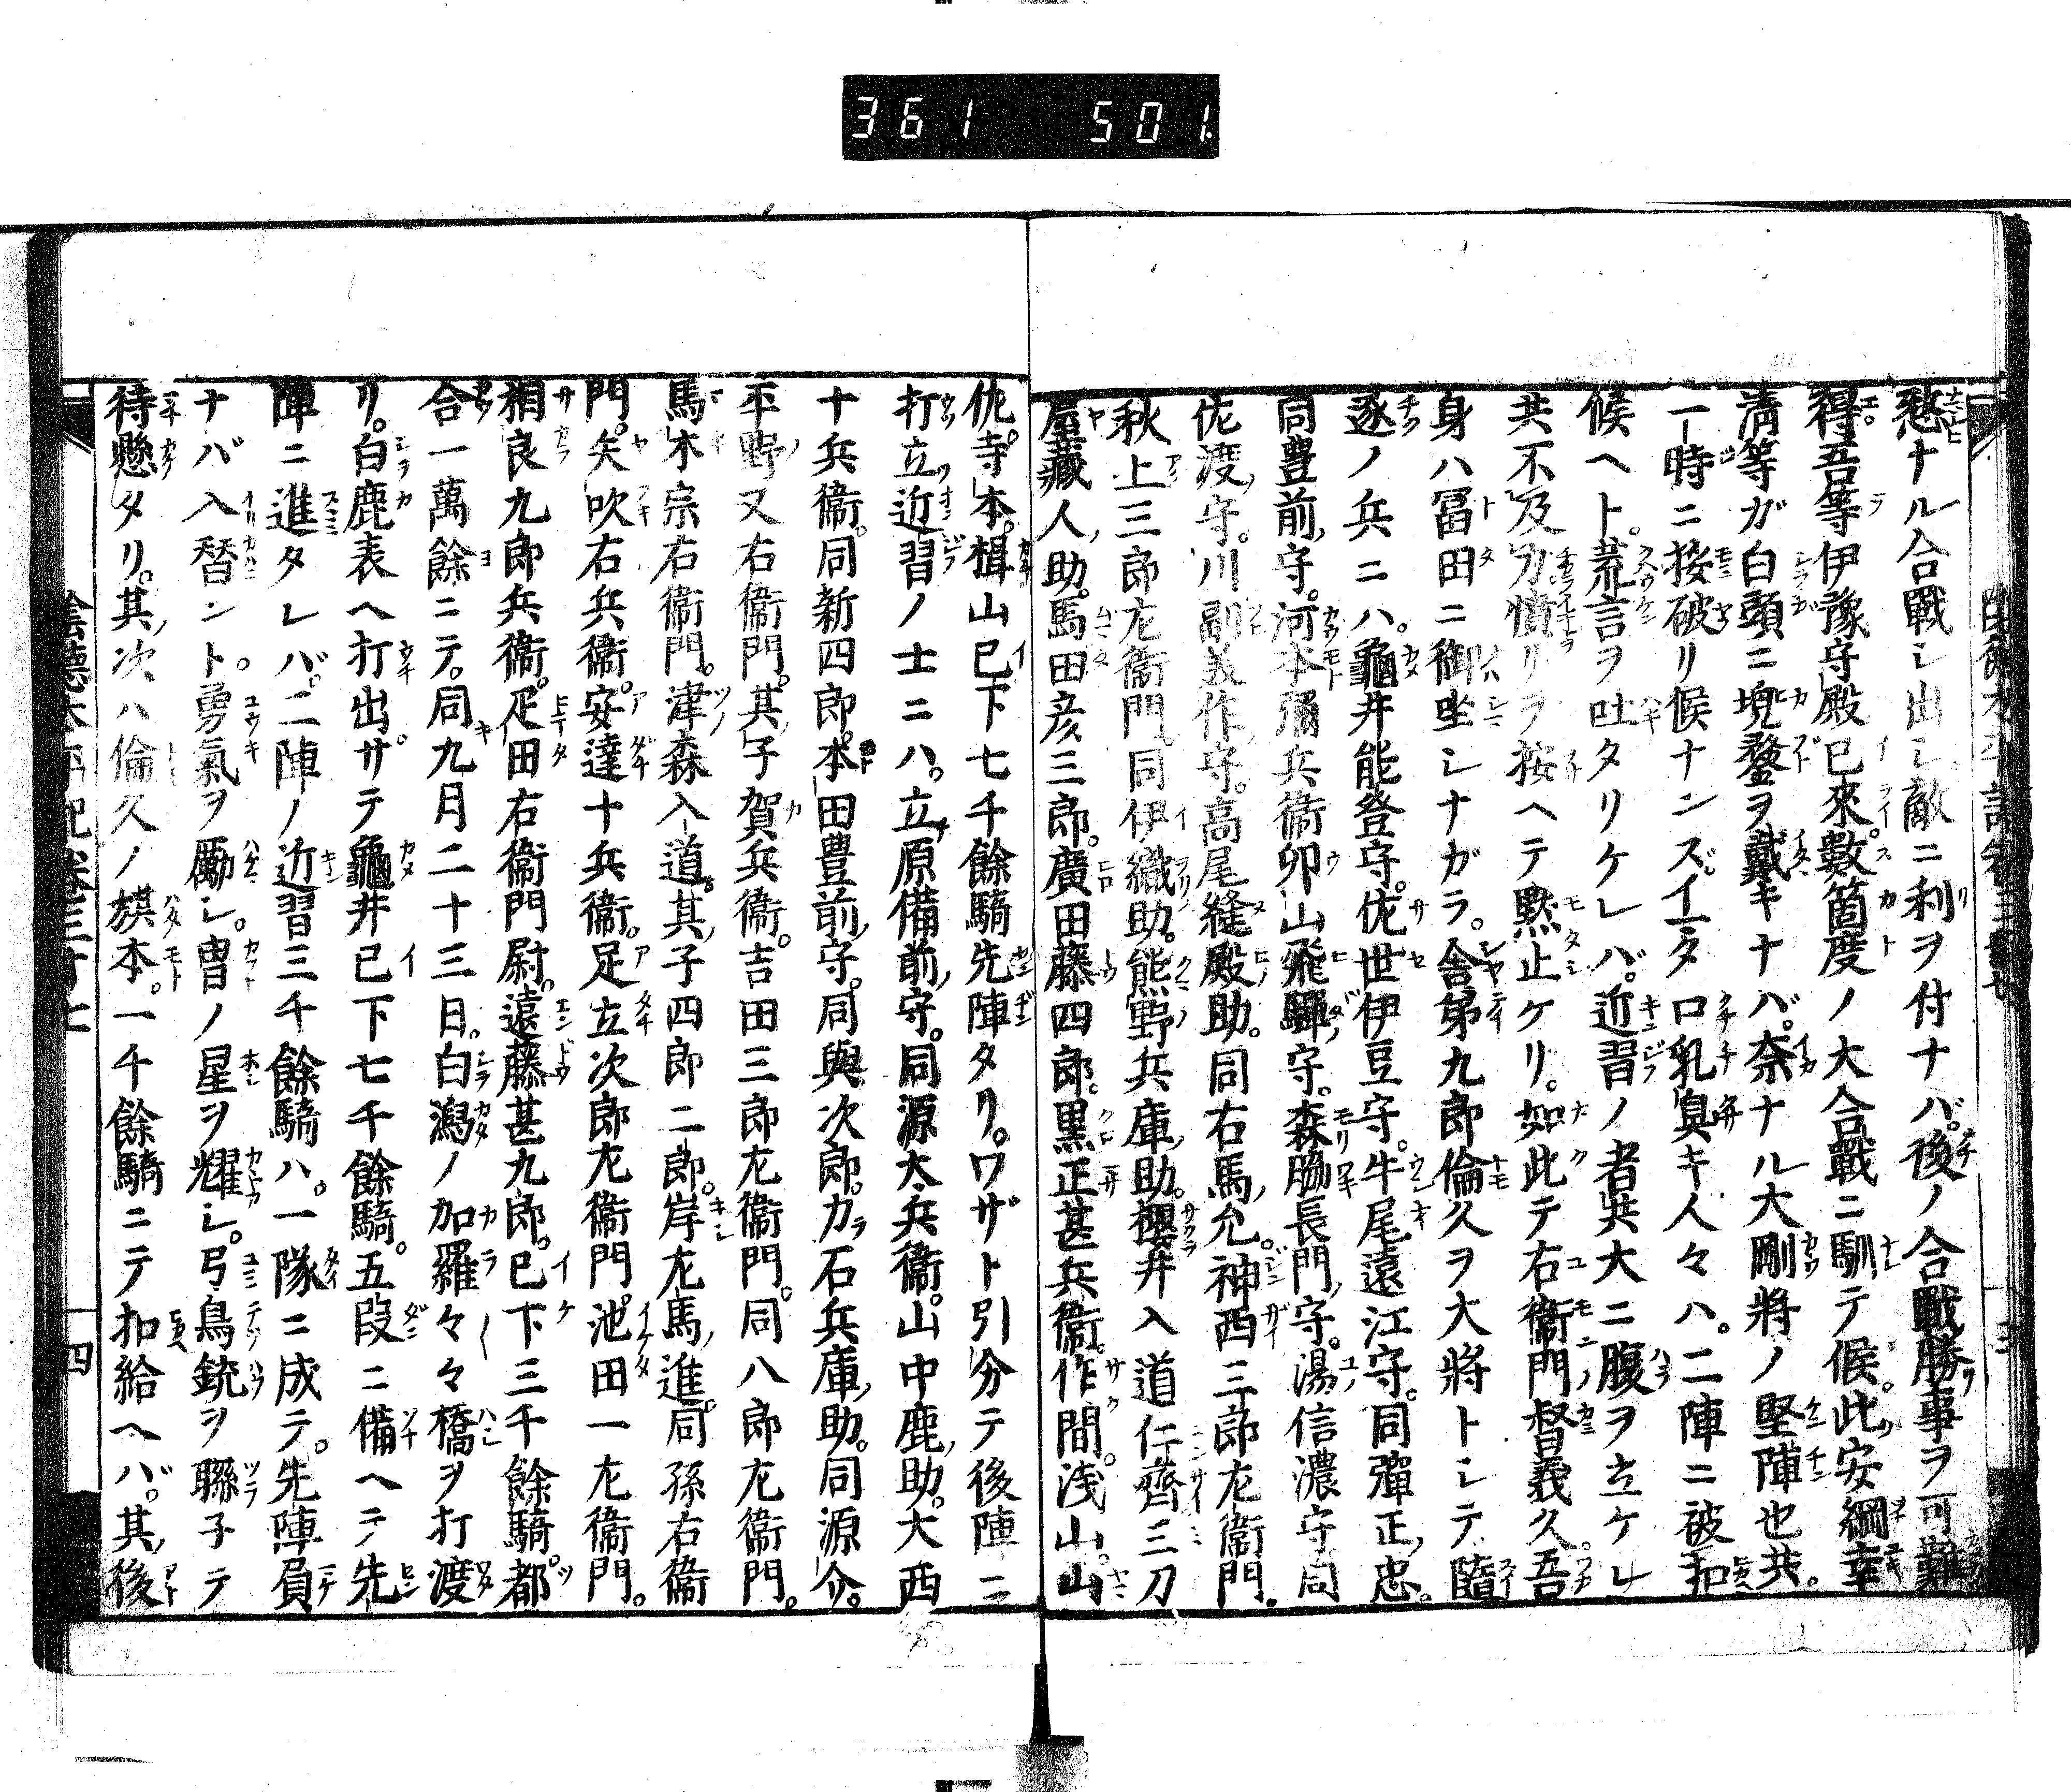 361 501
愁ナル合戰シ出シ敵ニ利ヲ付ナバ。後ノ合戰勝事ヲ可難
得。吾等伊豫守殿已來。數箇度ノ大合戰ニ馴テ候。此安綱幸
淸等ガ白頭ニ堄鍪ヲ戴キナバ。奈ナル大剛將ノ堅陣也共。
一時ニ按破リ候ナンズ。イマタ口乳臭キ人々ハ。二陣ニ被扣
候ヘト。荒言ヲ吐タリケレバ。近習ノ者共大ニ腹ヲ立ケレ
共不及力憤リヲ按ヘテ默止ケリ。如此テ右衞門督義久。吾
身ハ冨田ニ御坐シナガラ。舍弟九郎倫久ヲ大將トシテ隨
逐ノ兵ニハ。龜井能登守。佐世伊豆守。牛尾遠江守。同彈正忠。
同豊前守。河本彌兵衞卯山飛驒守。森脇長門守。湯信濃守同
佐渡守。川副美作守。高尾縫殿助。同右馬允。神西三郎左衞門。
秋上三郎左衞門。同伊織助。熊野兵庫助。櫻井入道仁齊三刀
屋藏人助。馬田彦三郎。廣田藤四郎。黒正甚兵衞。作間。淺山。山
佐。寺本。楫山已下七千餘騎先陣タリ。ワザト引分テ後陣ニ
打立近習ノ士ニハ。立原備前守。同源太兵衞。山中鹿助。大西
十兵衞。同新四郎。本田豊前守。同與次郎。力石兵庫助。同源介。
平野又右衞門。其子賀兵衞。吉田三郎左衞門。同八郎左衞門。
馬木宗右衞門。津森入道。其子四郎二郎。岸左馬進。同孫右衞
門。矢吹右兵衞。安達十兵衞。足立次郎左衞門。池田一左衞門。
相良九郎兵衞。疋田右衞門尉。遠藤甚九郎。已下三千餘騎。都
合一萬餘ニテ。同九月二十三日。白潟ノ加羅々々橋ヲ打渡
リ。白鹿表ヘ打出。サテ龜井已下七千餘騎。五段ニ備ヘテ先
陣ニ進タレバ。二陣ノ近習三千餘騎ハ。一隊ニ成テ。先陣負
ナバ入替ント。勇氣ヲ勵シ。冑ノ星ヲ耀シ。弓鳥銃ヲ聯子テ
待懸タリ。其次ハ倫久ノ旗本。一千餘騎ニテ扣給ヘバ。其後
陰德太平記卷三十七
四